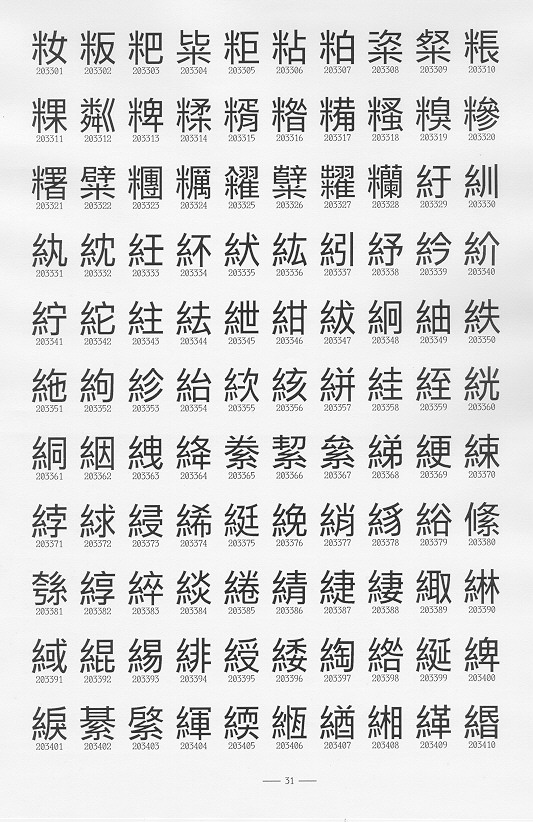 籹 粄 粑 粊 粔 粘 粕 粢 粲 粻
203301 203302 203303 203304 203305 203306 203307 203308 203309 203310
粿 粼 粺 糅 糈 糌 糒 糔 糗 糝
203311 203312 203313 203314 203315 203316 203317 203318 203319 203320
糬 糪 糰 糲 糴 糱 糶 糷 紆 紃
203321 203322 203323 203324 203325 203326 203327 203328 203329 203330
紈 紞 紝 紑 紎 紘 紖 紓 紟 紒
203331 203332 203333 203334 203335 203336 203337 203338 203339 203340
紵 紽 紸 紶 紲 紺 紱 絅 紬 紩
203341 203342 203343 203344 203345 203346 203347 203348 203349 203350
絁 絇 紾 紿 絘 絯 絣 絓 絰 絖
203351 203352 203353 203354 203355 203356 203357 203358 203359 203360
絧 絪 絏 絳 絭 絜 絫 綈 綆 綀
203361 203362 203363 203364 203365 203366 203367 203368 203369 203370
綍 絿 綅 絺 綎 絻 綃 綠 綌 絛
203371 203372 203373 203374 203375 203376 203377 203378 203379 203380
綔 綧 綷 緂 綣 綪 緁 緀 緅 綝
203381 203382 203383 203384 203385 203386 203387 203388 203389 203390
緎 緄 緆 緋 綬 緌 綯 綹 綖 綼
203391 203392 203393 203394 203395 203396 203397 203398 203399 203400
綟 綦 綮 緷 緛 緪 緧 緗 緙 緡
203401 203402 203403 203404 203405 203406 203407 203408 203409 203410
31